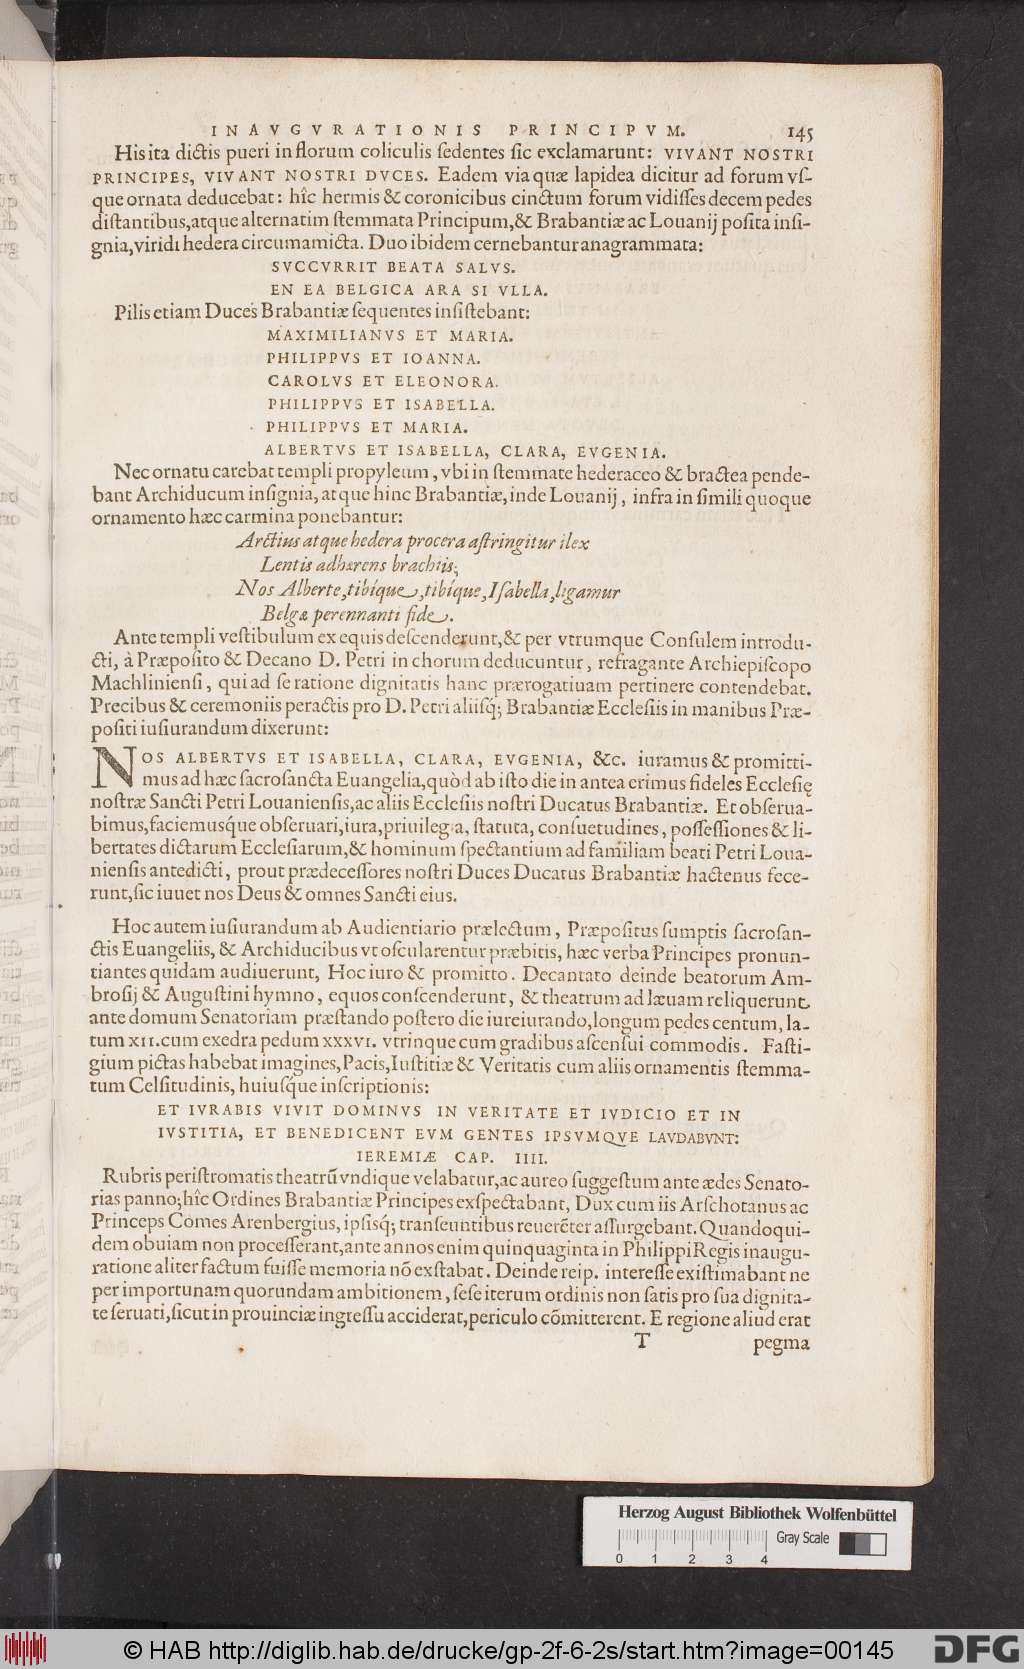 INAVGVRATIONIS PRINCIPVM. 145
His ita dictis pueri in florum coliculis ſedentes ſic exclamarunt: VIVANT NOSTRI
PRINCIPES, VIVANT NOSTRI DVCES. Eadem via quæ lapidea dicitur ad forum vſ-
que ornata deducebat: hîc hermis & coronicibus cinctum forum vidiſſes decem pedes
diſtantibus, atque alternatim ſtemmata Principum, & Brabantiæ ac Louanij poſita inſi-
gnia, viridi hedera circumamicta. Duo ibidem cernebantur anagrammata:
SVCCVRRIT BEATA SALVS.
EN EA BELGICA ARA SI VLLA.
Pilis etiam Duces Brabantiæ ſequentes inſiſtebant:
MAXIMILIANVS ET MARIA.
PHILIPPVS ET IOANNA.
CAROLVS ET ELEONORA.
PHILIPPVS ET ISABELLA.
PHILIPPVS ET MARIA.
ALBERTVS ET ISABELLA, CLARA, EVGENIA.
Nec ornatu carebat templi propyleum, vbi in ſtemmate hederaceo & bractea pende-
bant Archiducum inſignia, atque hinc Brabantiæ, inde Louanij, infra in ſimili quoque
ornamento hæc carmina ponebantur:
Arctius atque hedera procera aſtringitur ilex
Lentis adhærens brachiis;
Nos Alberte, tibíque, tibíque, Iſabella, ligamur
Belgæ perennanti fide.
Ante templi veſtibulum ex equis deſcenderunt, & per vtrumque Conſulem introdu-
cti, à Præpoſito & Decano D. Petri in chorum deducuntur, refragante Archiepiſcopo
Machlinienſi, qui ad ſe ratione dignitatis hanc prærogatiuam pertinere contendebat.
Precibus & ceremoniis peractis pro D. Petri aliiſq́; Brabantiæ Eccleſiis in manibus Præ-
poſiti iuſiurandum dixerunt:
NOS ALBERTVS ET ISABELLA, CLARA, EVGENIA, &c. iuramus & promitti-
mus ad hæc ſacroſancta Euangelia, quòd ab iſto die in antea erimus fideles Eccleſię
noſtræ Sancti Petri Louanienſis, ac aliis Eccleſiis noſtri Ducatus Brabantiæ. Et obſerua-
bimus, faciemuſq́ue obſeruari, iura, priuilegia, ſtatuta, conſuetudines, poſſeſſiones & li-
bertates dictarum Eccleſiarum, & hominum ſpectantium ad familiam beati Petri Loua-
nienſis antedicti, prout prædeceſſores noſtri Duces Ducatus Brabantiæ hactenus fece-
runt, ſic iuuet nos Deus & omnes Sancti eius.
Hoc autem iuſiurandum ab Audientiario prælectum, Præpoſitus ſumptis ſacroſan-
ctis Euangeliis, & Archiducibus vt oſcularentur præbitis, hæc verba Principes pronun-
tiantes quidam audiuerunt, Hoc iuro & promitto. Decantato deinde beatorum Am-
broſij & Auguſtini hymno, equos conſcenderunt, & theatrum ad læuam reliquerunt
ante domum Senatoriam præſtando poſtero die iureiurando, longum pedes centum, la-
tum XII. cum exedra pedum XXXVI. vtrinque cum gradibus aſcenſui commodis. Faſti-
gium pictas habebat imagines, Pacis, Iuſtitiæ & Veritatis cum aliis ornamentis ſtemma-
tum Celſitudinis, huiuſque inſcriptionis:
ET IVRABIS VIVIT DOMINVS IN VERITATE ET IVDICIO ET IN
IVSTITIA, ET BENEDICENT EVM GENTES IPSVMQVE LAVDABVNT:
IEREMIÆ CAP. IIII.
Rubris periſtromatis theatrũ vndique velabatur, ac aureo ſuggeſtum ante ædes Senato-
rias panno; hîc Ordines Brabantiæ Principes exſpectabant, Dux cum iis Arſchotanus ac
Princeps Comes Arenbergius, ipſisq́; tranſeuntibus reuerẽter aſſurgebant. Quandoqui-
dem obuiam non proceſſerant, ante annos enim quinquaginta in Philippi Regis inaugu-
ratione aliter factum fuiſſe memoria nõ exſtabat. Deinde reip. intereſſe exiſtimabant ne
per importunam quorundam ambitionem, ſeſe iterum ordinis non ſatis pro ſua dignita-
te ſeruati, ſicut in prouinciæ ingreſſu acciderat, periculo cõmitterent. E regione aliud erat
T pegma
Herzog August Bibliothek Wolfenbüttel
Gray Scale
0 1 2 3 4
© HAB http://diglib.hab.de/drucke/gp-2f-6-2s/start.htm?image=00145
DFG